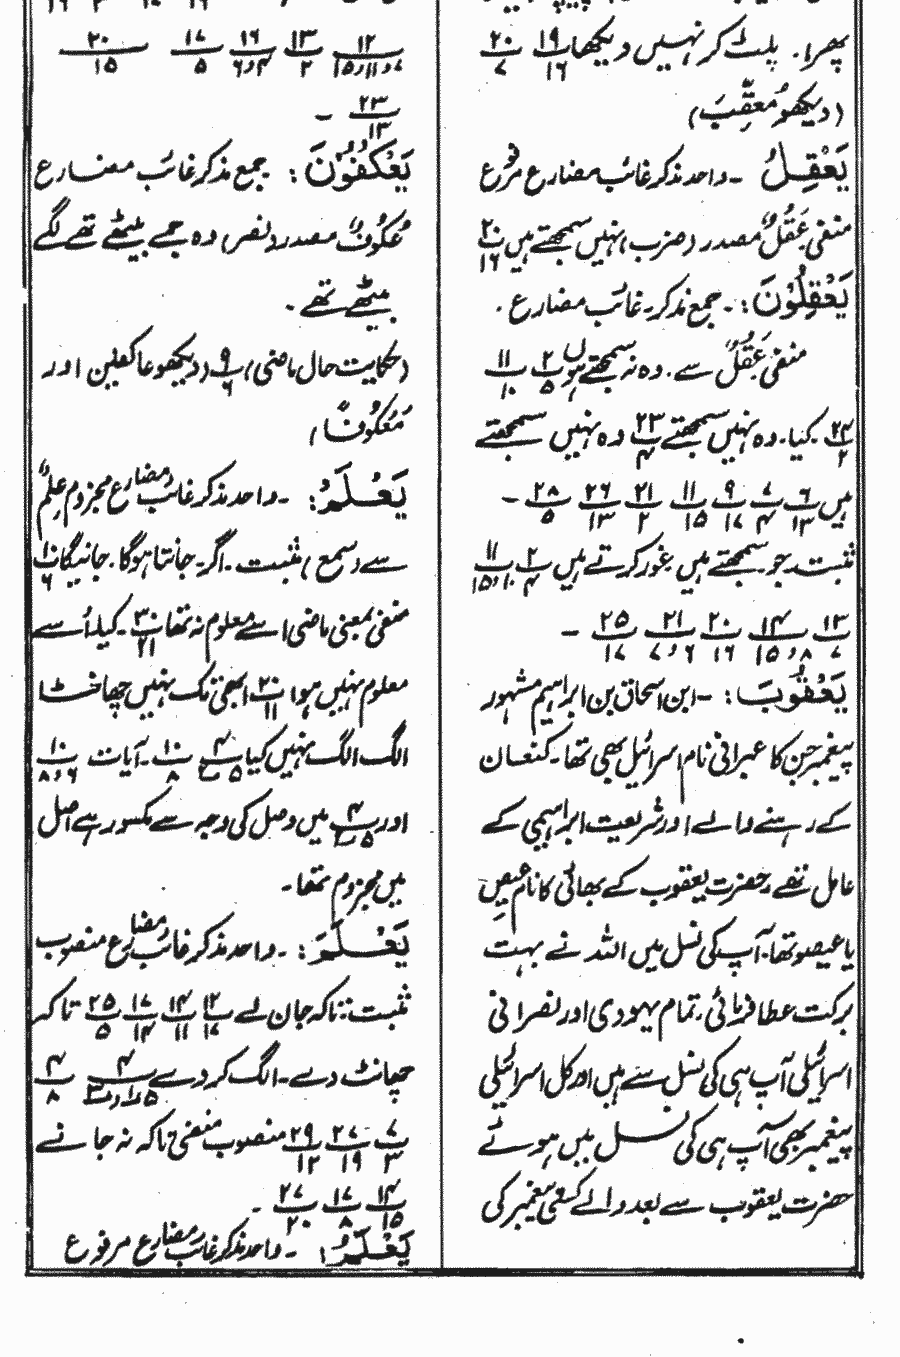 پھرا۔ پلٹ کر نہیں دیکھا ۱۹/۱۶ ۲۰/۷
(دیکھو مُعَقِّبٌ)
یَعْقِلُ ۔ واحد مذکر غائب مضارع مرفوع
منفی عَقْلٌ مصدر (ضرب) نہیں سمجھتے ہیں ۲۰/۱۶
یَعْقِلُوْنَ: ۔ جمع مذکر ۔ غائب مضارع ۔
منفی عَقْلٌ سے ۔ وہ نہ سمجھتے ہوں ۲/۵ ۱۱/۱۰
۲۳/۲ کیا ۔ وہ نہیں سمجھتے ۲۳/۴ وہ نہیں سمجھتے
ہیں ۶/۱۳ ۷/۴ ۹/۱۷ ۱۱/۱۵ ۲۱/۲ ۲۶/۱۳ ۲۸/۵ ۔
مثبت ۔ جو سمجھتے ہیں غور کرتے ہیں ۲/۴ ۱۱/۱۰و۱۵
۱۳/۷ ۱۴/۸و۱۵ ۲۰/۱۶ ۲۱/۶و۷ ۲۵/۱۷ ۔
یَعْقُوْبَ: ۔ ابن اسحاق بن ابراہیم مشہور
پیغمبر جن کا عبرانی نام اسرائیل بھی تھا ۔ کنعان
کے رہنے والے اور شریعت ابراہیمی کے
عامل تھے حضرت یعقوب کے بھائی کا نام عیص
یا عیصو تھا ۔ آپ کی نسل میں اللہ نے بہت
برکت عطا فرمائی ۔ تمام یہودی اور نصرانی
اسرائیلی آپ ہی کی نسل سے ہیں اور کل اسرائیلی
پیغمبر بھی آپ ہی کی نسل میں ہوئے
حضرت یعقوب سے بعد والے کسی پیغمبر کی
۱۲/۷و۱۱و۱۵ ۱۳/۲ ۱۶/۴و۶ ۱۷/۵ ۲۰/۱۵
۲۳/۱۳ ۔
یَعْکُفُوْنَ: جمع مذکر غائب مضارع
عُکُوْفٌ مصدر (نصر) وہ جمے بیٹھے تھے لگے
بیٹھے تھے ۔
(حکایت حال ماضی) ۹/۶ (دیکھو عاکفین اور
مَعْکُوْفًا)
یَعْلَمُ: ۔ واحد مذکر غائب مضارع مجزوم عِلْمٌ
سے (سمع) مثبت ۔ اگر جانتا ہوگا ۔ جانیگا ۱۰/۶
منفی بمعنی ماضی اسے معلوم نہ تھا ۳۰/۲۱ ۔ کیا اُسے
معلوم نہیں ہوا ۲۰/۱۱ ابھی تک نہیں چھانٹا
الگ الگ نہیں کیا ۴/۵ ۱۰/۸ ۔ آیات ۱۰/۶و۸
اور ۴/۵ میں وصل کی وجہ سے مکسور ہے اصل
میں مجزوم تھا ۔
یَعْلَمَ: ۔ واحد مذکر غائب مضارع منصوب
مثبت: تاکہ جان لے ۱۲/۱۷ ۱۴/۱۱ ۱۷/۱۴ ۲۵/۵ تاکہ
چھانٹ دے ۔ الگ کر دے ۴/۵ ۴/۸
۷/۳ ۲۷/۱۹ ۲۹/۱۲ منصوب منفی تاکہ نہ جانے
۱۴/۱۵ ۱۷/۸ ۲۷/۲۰ ۔
یَعْلَمُ: ۔ واحد مذکر غائب مضارع مرفوع